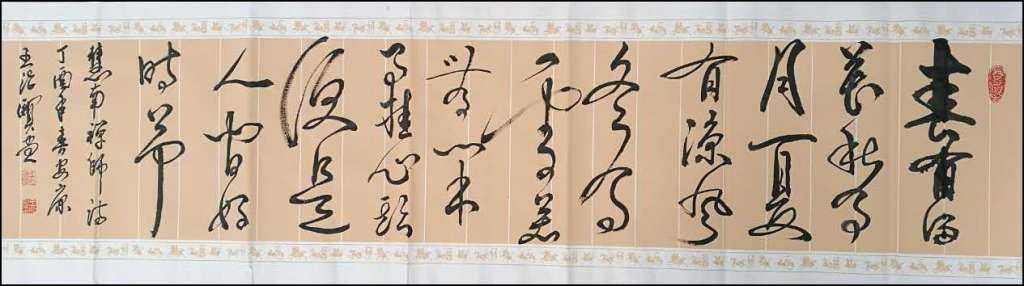 春有百
花秋有
月夏
有涼風
冬有
雪若
無閑
事挂心頭
便是
人間好
時節
慧南禪師詩
丁酉年春安康
王